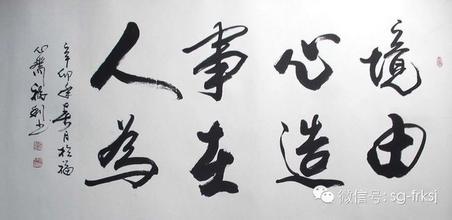 境由
心造
事在
人為
辛卯年春月於福
微信号: sg-frksj